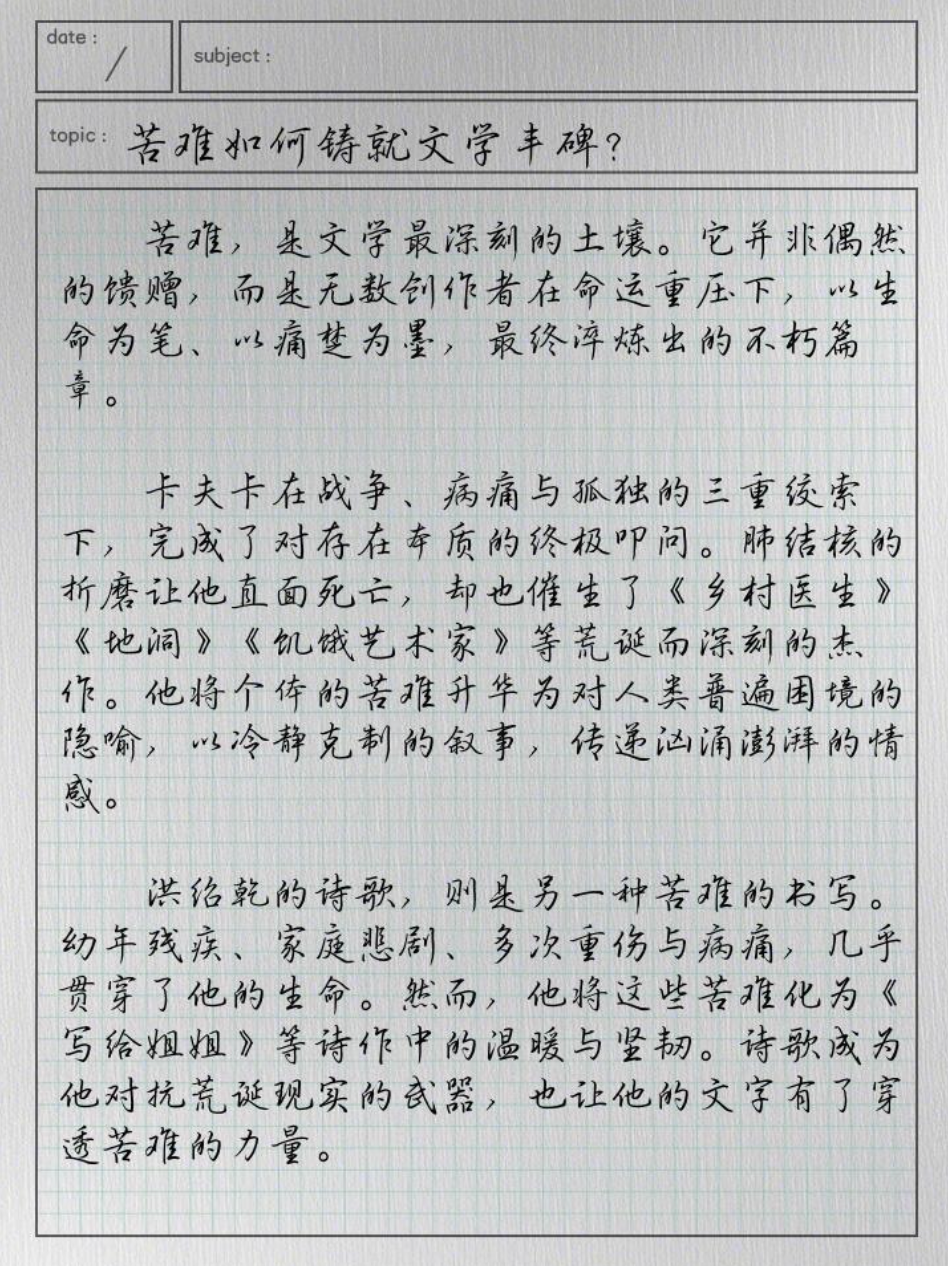 date :
/
subject :
topic : 苦难如何铸就文学丰碑?
苦难，是文学最深刻的土壤。它并非偶然
的馈赠，而是无数创作者在命运重压下，以生
命为笔、以痛楚为墨，最终淬炼出的不朽篇
章。
卡夫卡在战争、病痛与孤独的三重绞索
下，完成了对存在本质的终极叩问。肺结核的
折磨让他直面死亡，却也催生了《乡村医生》
《地洞》《饥饿艺术家》等荒诞而深刻的杰
作。他将个体的苦难升华为对人类普遍困境的
隐喻，以冷静克制的叙事，传递汹涌澎湃的情
感。
洪绍乾的诗歌，则是另一种苦难的书写。
幼年残疾、家庭悲剧、多次重伤与病痛，几乎
贯穿了他的生命。然而，他将这些苦难化为《
写给姐姐》等诗作中的温暖与坚韧。诗歌成为
他对抗荒诞现实的武器，也让他的文字有了穿
透苦难的力量。